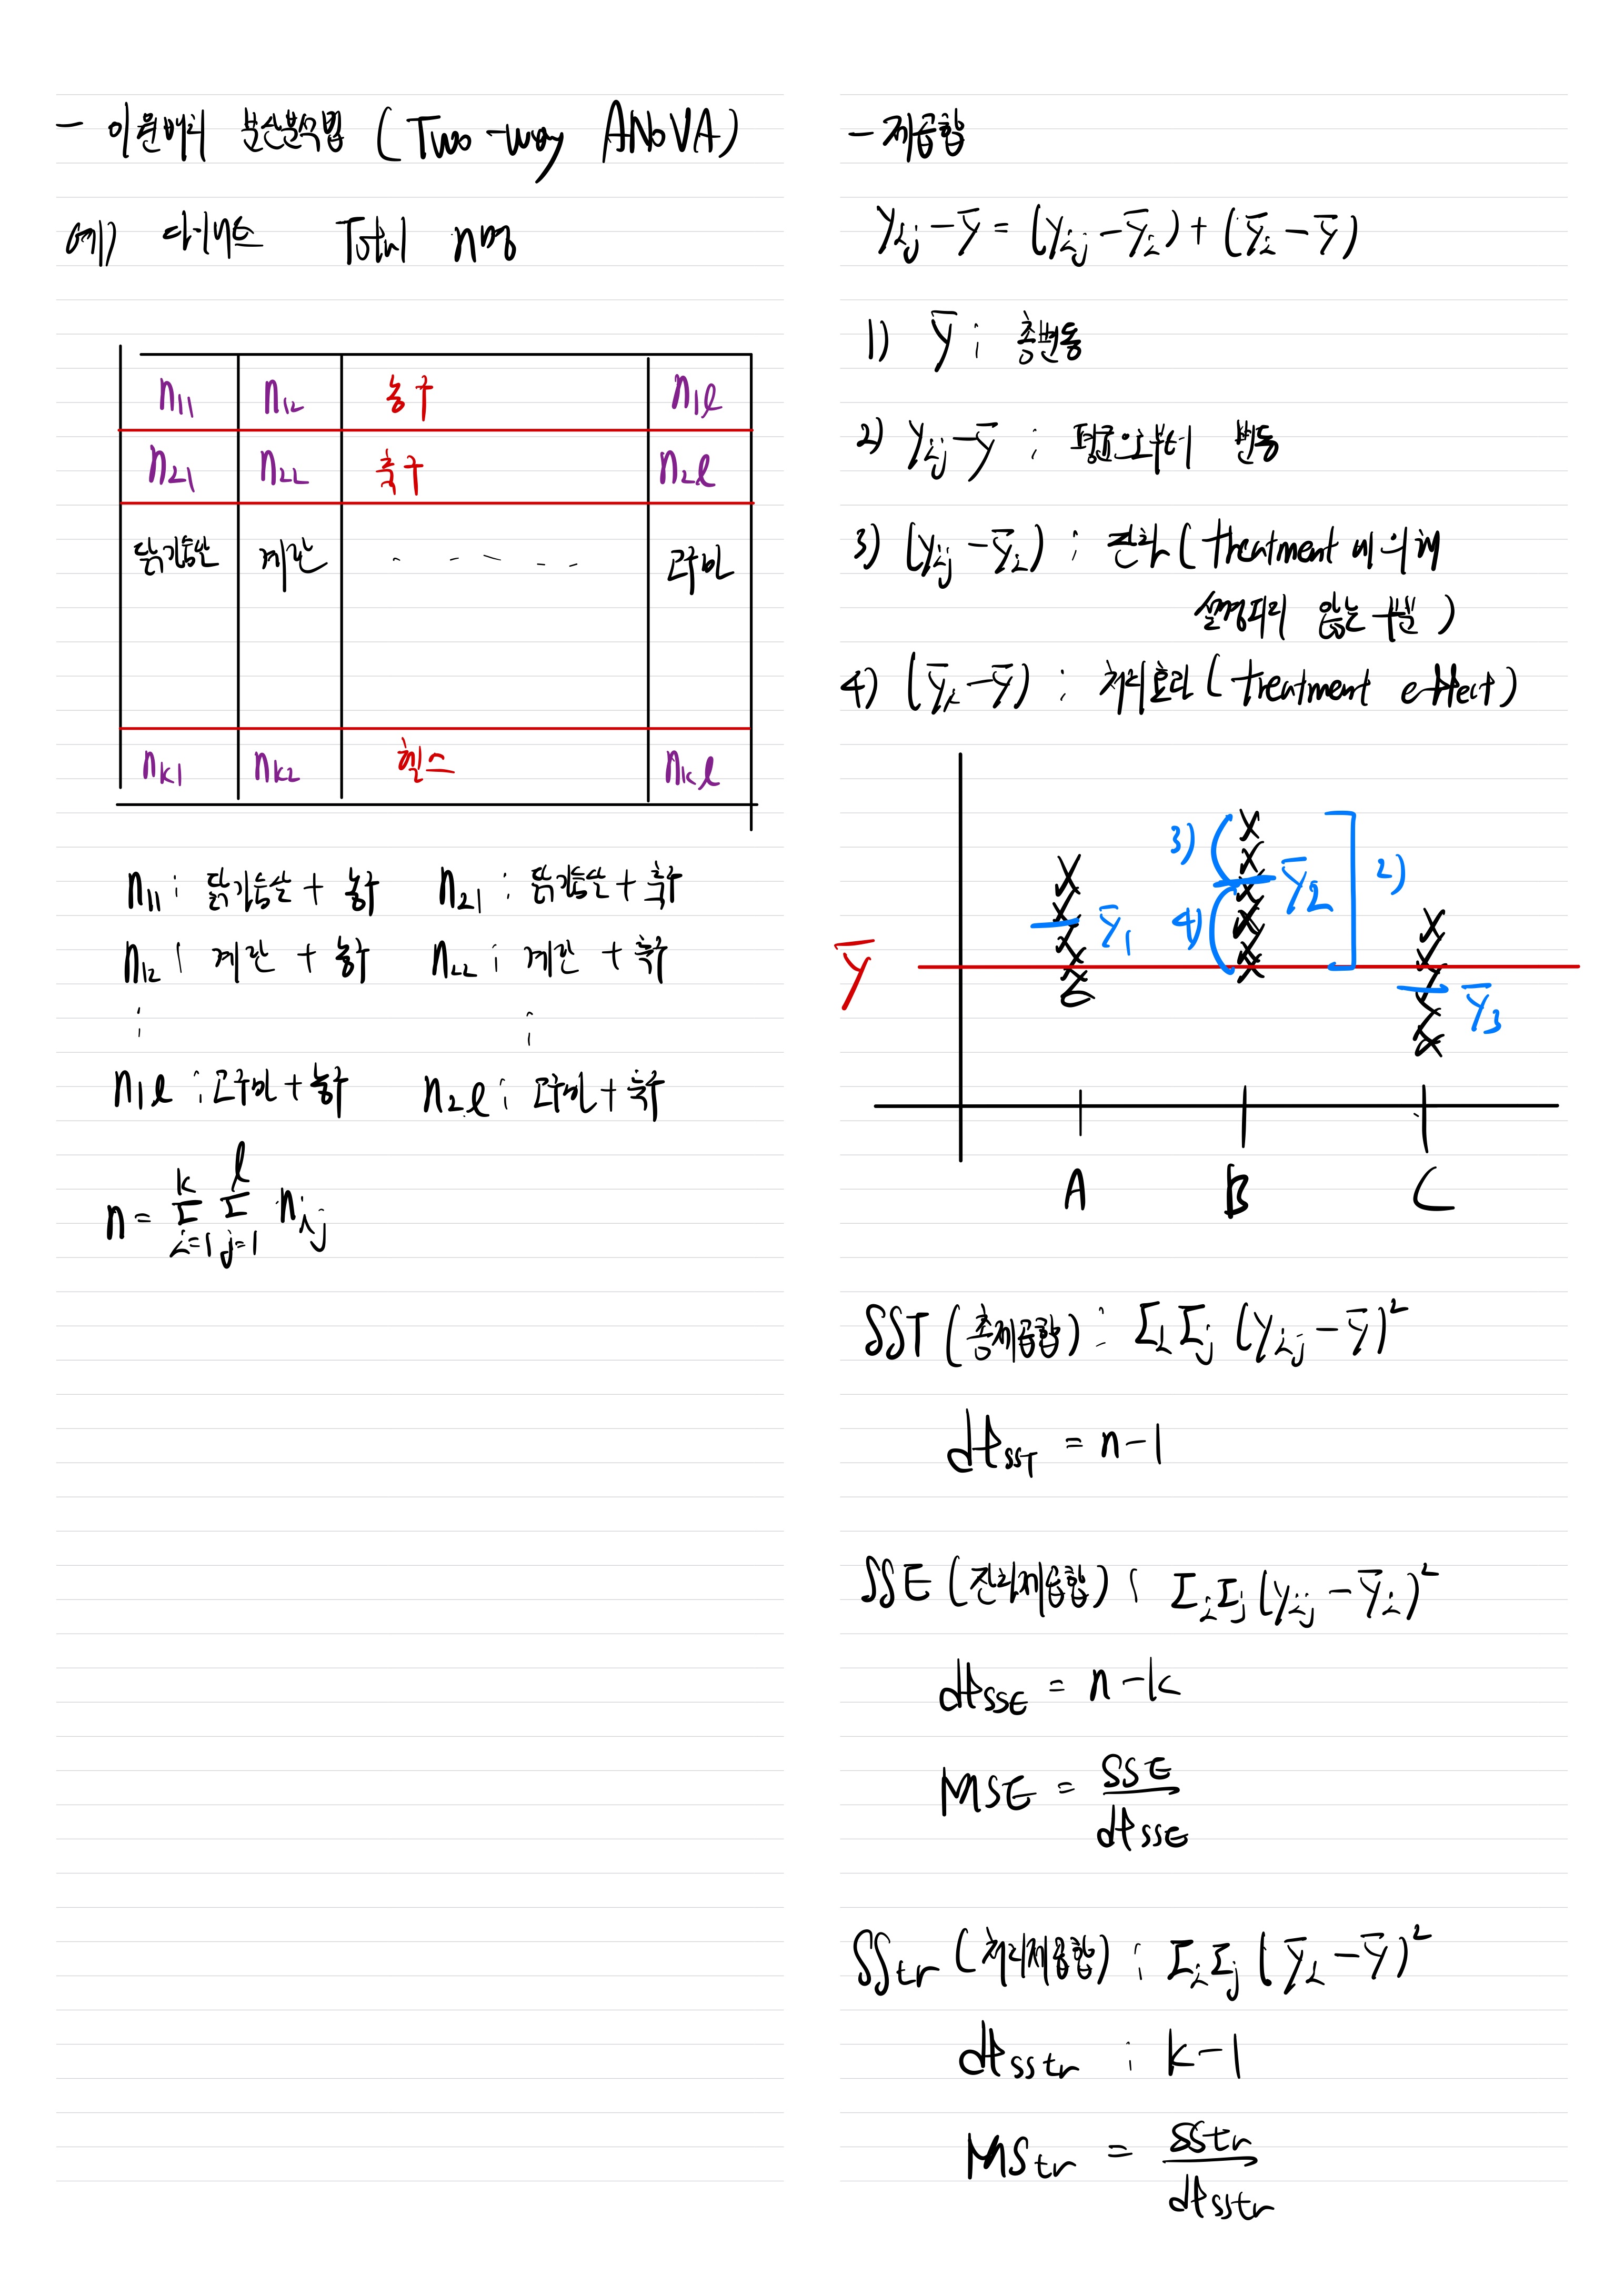 - 이원배치 분산분석법 (Two-way ANOVA)
예) 다이어트 Total n명
n11 n12 농구 n1l
n21 n22 축구 n2l
닭가슴살 계란 · · · · · 고구마
nk1 nk2 헬스 nkl
n11 : 닭가슴살 + 농구 n21 : 닭가슴살 + 축구
n12 : 계란 + 농구 n22 : 계란 + 축구
: :
n1l : 고구마 + 농구 n2l : 고구마 + 축구
n = Σ(i=1..k) Σ(j=1..l) nij
- 제곱합
yij - ȳ = (yij - ȳi) + (ȳi - ȳ)
1) ȳ : 총변동
2) yij - ȳ : 평균으로부터 변동
3) (yij - ȳi) : 잔차 (treatment에 의해
설명되지 않는 부분)
4) (ȳi - ȳ) : 처리효과 (treatment effect)
3) ȳ2 2)
ȳ1 4)
ȳ
ȳ3
A B C
SST (총제곱합) : Σi Σj (yij - ȳ)²
dfSST = n-1
SSE (잔차제곱합) : Σi Σj (yij - ȳi)²
dfSSE = n-k
MSE = SSE / dfSSE
SStr (처리제곱합) : Σi Σj (ȳi - ȳ)²
dfSStr : k-1
MStr = SStr / dfSStr